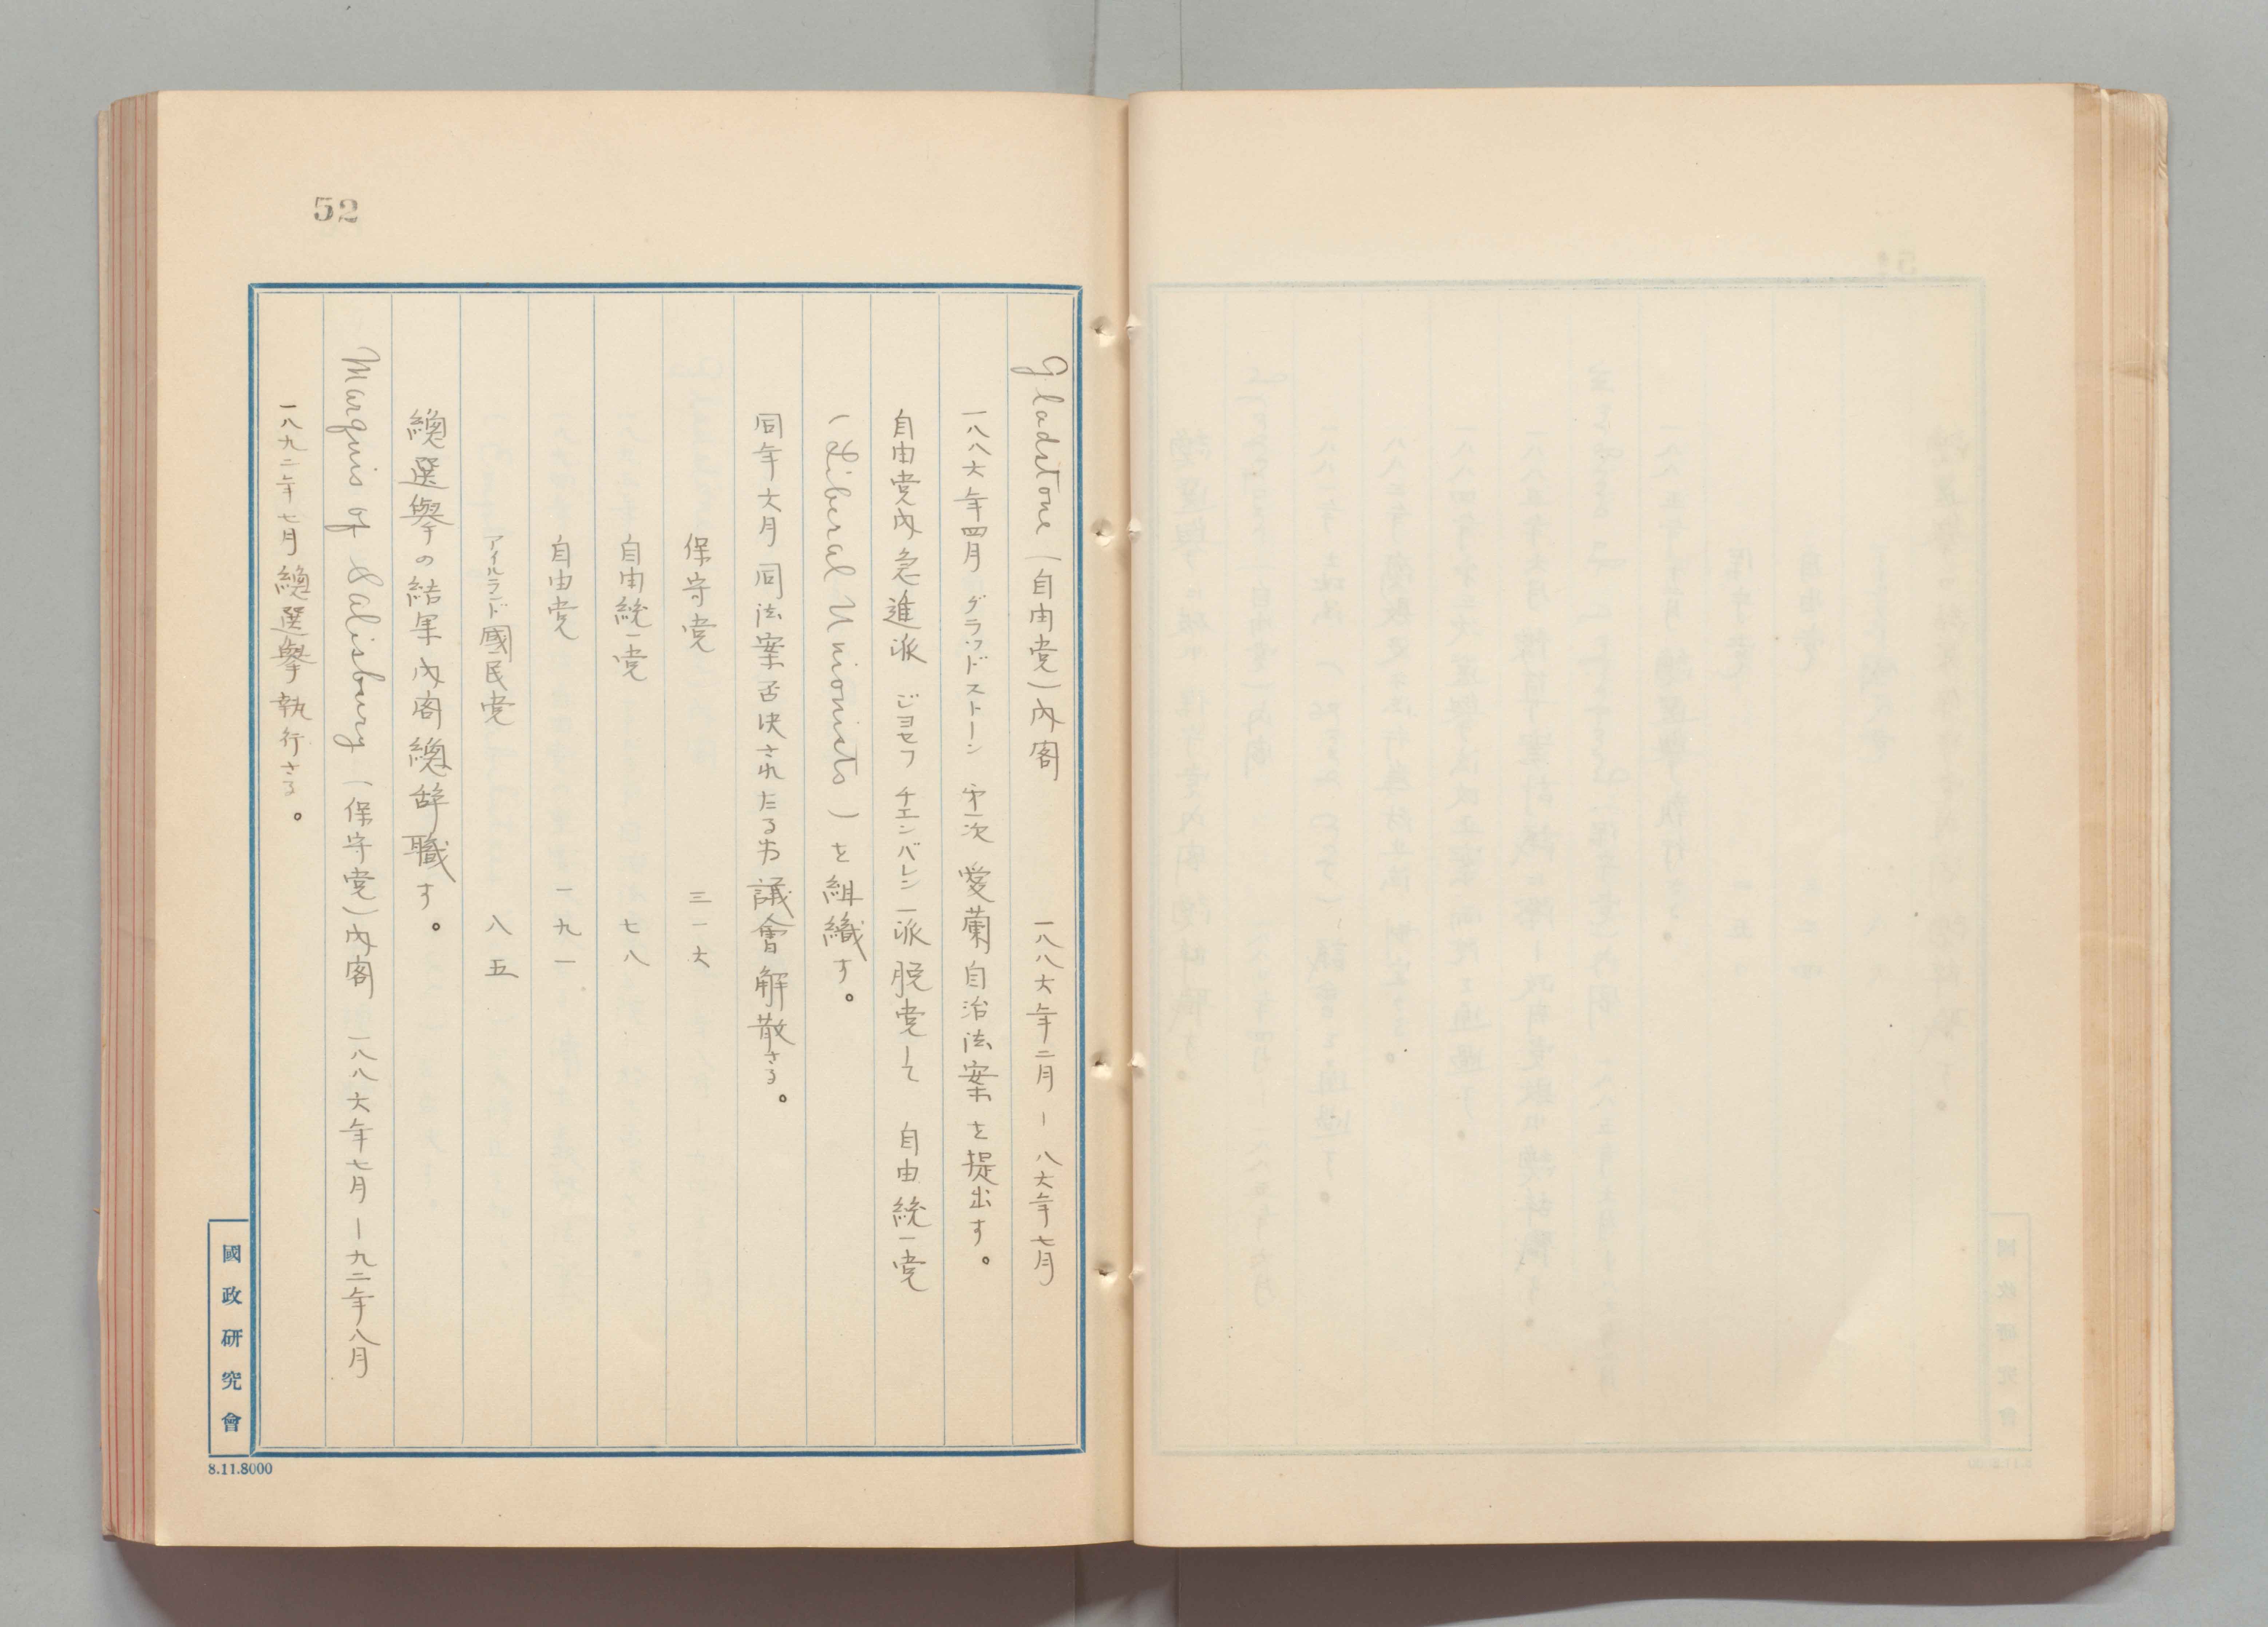 52
Gladstone (自由党)內閣 一八八六年二月—八六年七月
一八八六年四月 グラッドストーン 第一次 愛蘭自治法案を提出す。
自由党內急進派 ジヨセフ チエンバレン一派脱党して 自由統一党
(Liberal Unionists)を組織す。
同年六月同法案否決されたる為議會解散さる。
保守党 三一六
自由統一党 七八
自由党 一九一
アイルランド國民党 八五
總選擧の結果內閣總辞職す。
Marquis of Salisbury (保守党)內閣 一八八六年七月—九二年八月
一八九二年七月總選擧執行さる。
國政研究會
8.11.8000